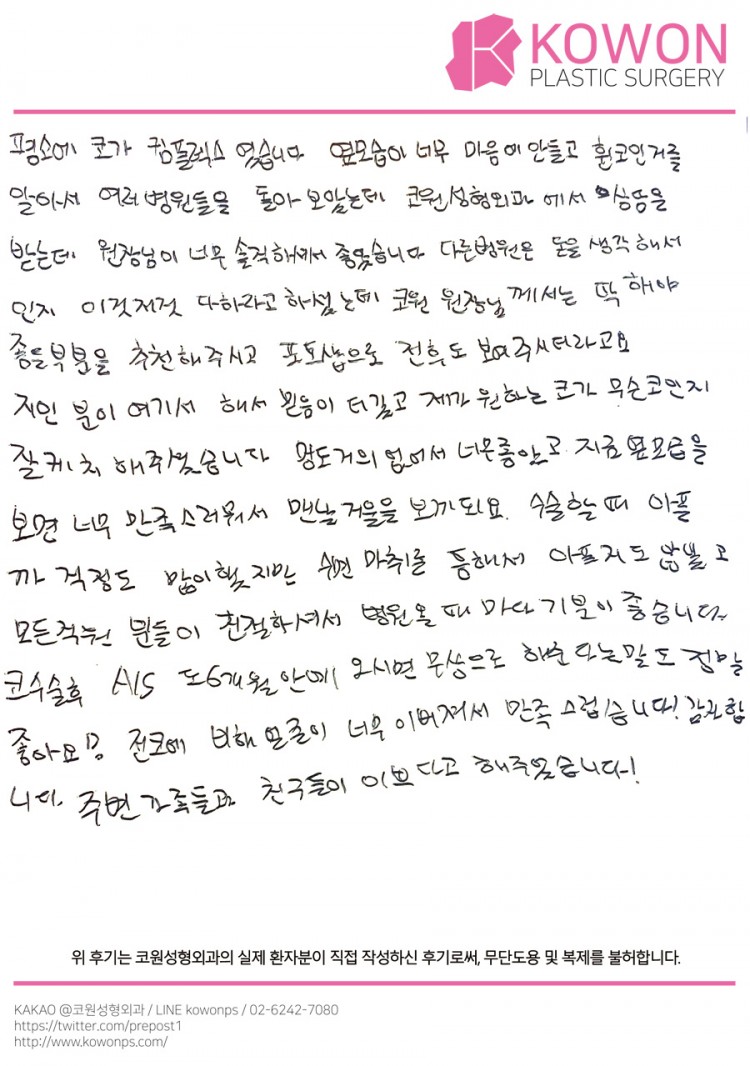 KOWON
PLASTIC SURGERY
평소에 코가 컴플렉스 였습니다 옆모습이 너무 마음에 안들고 휜코인거를
알아서 여러병원들을 돌아보았는데 코원성형외과에서 상담을
받는데 원장님이 너무 솔직해서 좋았습니다 다른병원은 돈을 생각해서
인지 이것저것 다하라고 하셨는데 코원 원장님께서는 딱 해야
좋을부분을 추천해주시고 포토샵으로 전후도 보여주시더라고요
지인 분이 여기서 해서 믿음이 더갔고 제가 원하는 코가 무슨코인지
잘캐치 해주셨습니다 멍도거의 없어서 너무좋았고 지금 옆모습을
보면 너무 만족스러워서 맨날거울을 보게되요. 수술할때 아플
까 걱정도 많이했지만 수면 마취를 통해서 아프지도 않았고
모든직원 분들이 친절하셔서 병원올 때 마다 기분이 좋습니다.
코수술후 A/S 도6개월안에 오시면 무상으로 해준다는말도 정말
좋아요!! 전코에 비해 얼굴이 너무 이뻐져서 만족스럽습니다! 감사합
니다. 주변가족들과 친구들이 이쁘다고 해주었습니다!
위 후기는 코원성형외과의 실제 환자분이 직접 작성하신 후기로써, 무단도용 및 복제를 불허합니다.
KAKAO @코원성형외과 / LINE kowonps / 02-6242-7080
https://twitter.com/prepost1
http://www.kowonps.com/